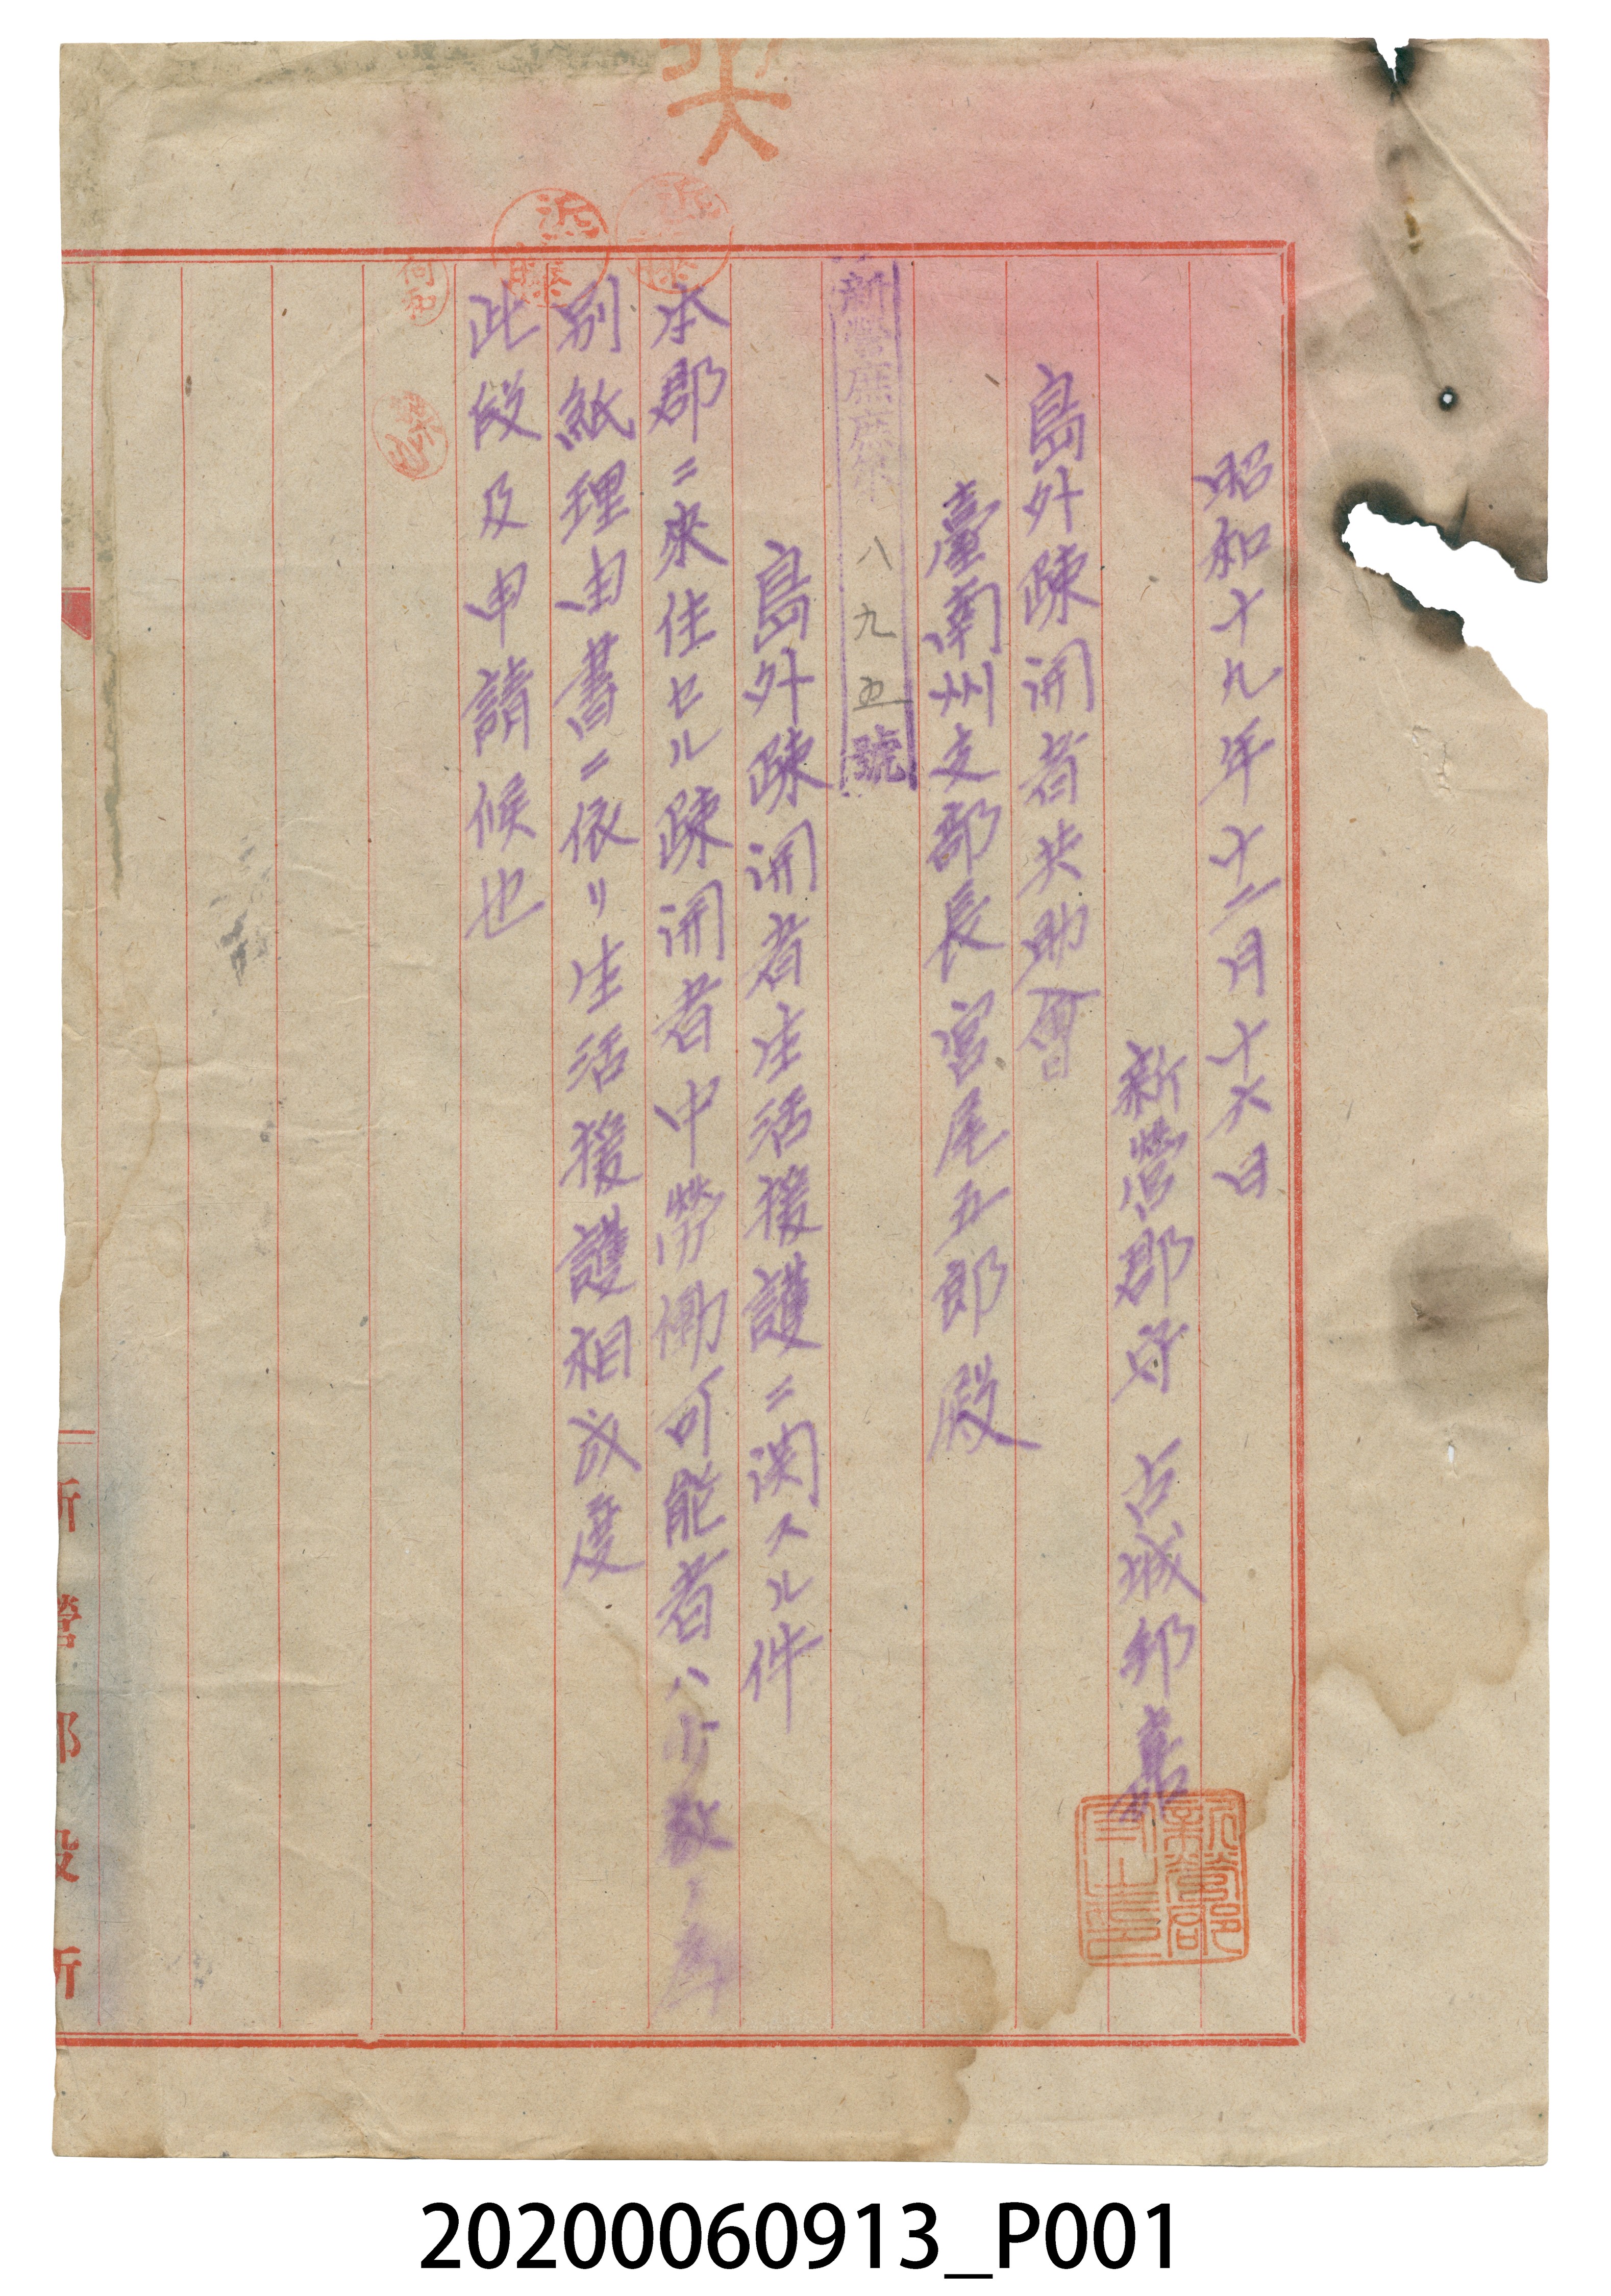 昭和十九年十二月十六日
新營郡守 古城邦喜
島外疎開者共助會
臺南州支部長宮尾五郎殿
新營庶庶第八九五號
島外疎開者生活援護ニ関スル件
本郡ニ來住セル疎開者中勞働可能者ハ 數
別紙理由書ニ依リ生活援護相成度
此段及申請候也
近藤
近藤
新營郡
新營郡役所
20200060913_P001